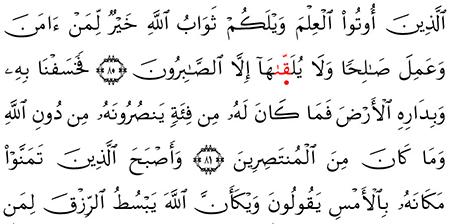 ٱلَّذِينَ أُوتُوا۟ ٱلْعِلْمَ وَيْلَكُمْ ثَوَابُ ٱللَّهِ خَيْرٌ لِّمَنْ ءَامَنَ
وَعَمِلَ صَـٰلِحًا وَلَا يُلَقّٜىٰهَآ إِلَّا ٱلصَّـٰبِرُونَ ٨٠ فَخَسَفْنَا بِهِۦ
وَبِدَارِهِ ٱلْأَرْضَ فَمَا كَانَ لَهُۥ مِن فِئَةٍ يَنصُرُونَهُۥ مِن دُونِ ٱللَّهِ
وَمَا كَانَ مِنَ ٱلْمُنتَصِرِينَ ٨١ وَأَصْبَحَ ٱلَّذِينَ تَمَنَّوْا۟
مَكَانَهُۥ بِٱلْأَمْسِ يَقُولُونَ وَيْكَأَنَّ ٱللَّهَ يَبْسُطُ ٱلرِّزْقَ لِمَن